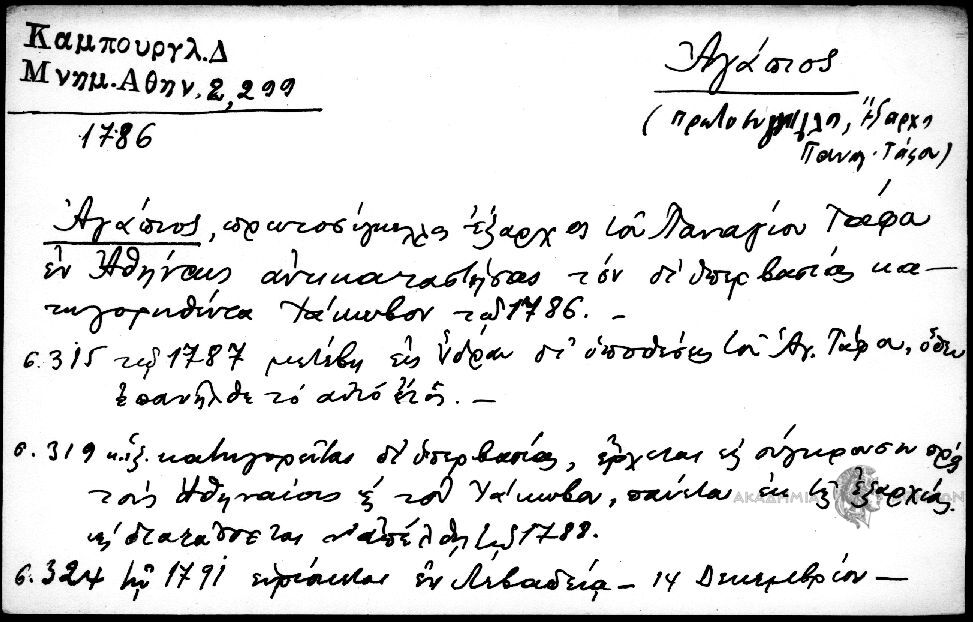 Καμπουργλ.Δ
Μνημ.Αθην. 2, 299
1786
Ἀγάπιος
(πρωτοσύγγελλος, Ἔξαρχος
Παναγ. Τάφου)
Ἀγάπιος, πρωτοσύγκελλος ἔξαρχος τοῦ Παναγίου Τάφου
ἐν Ἀθήναις ἀντικαταστήσας τὸν δι' ὑπερβασίας κα-
τηγορηθέντα Ἰάκωβον τῷ 1786. -
σ. 315 τῷ 1787 μετέβη εἰς Ὕδραν δι' ὑποθέσεις τοῦ Ἁγ. Τάφου, ὅθεν
ἐπανῆλθε τὸ αὐτὸ ἔτος. -
σ. 319 κ.ἑξ. κατηγορεῖται δι' ὑπερβασίας, ἔρχεται εἰς σύγκρουσιν πρὸς
τοὺς Ἀθηναίους ἐ τοῦ Ἰακώβου, παύεται ἐκ τῆς ἐξαρχίας
κ διατάσσεται ν' ἀπέλθῃ τῷ 1788.
σ. 324 τῷ 1791 εὑρίσκεται ἐν Λεβαδείᾳ - 14 Δεκεμβρίου -
ΑΚΑΔΗΜΙΑ ΑΘΗΝΩΝ